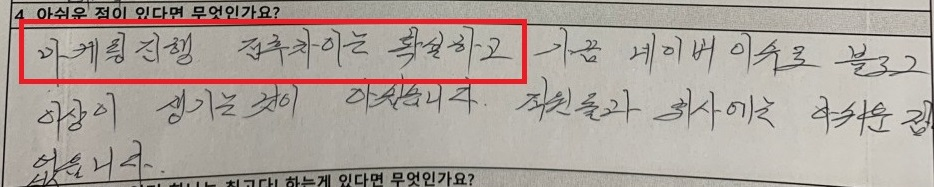 4. 아쉬운 점이 있다면 무엇인가요?
마케팅 진행 접수차이는 확실하고 가끔 네이버 이슈로 블로그
이상이 생기는 것이 아쉽습니다. 직원들과 회사에는 아쉬운 점
없습니다.
하는게 있다면 무엇인가요?